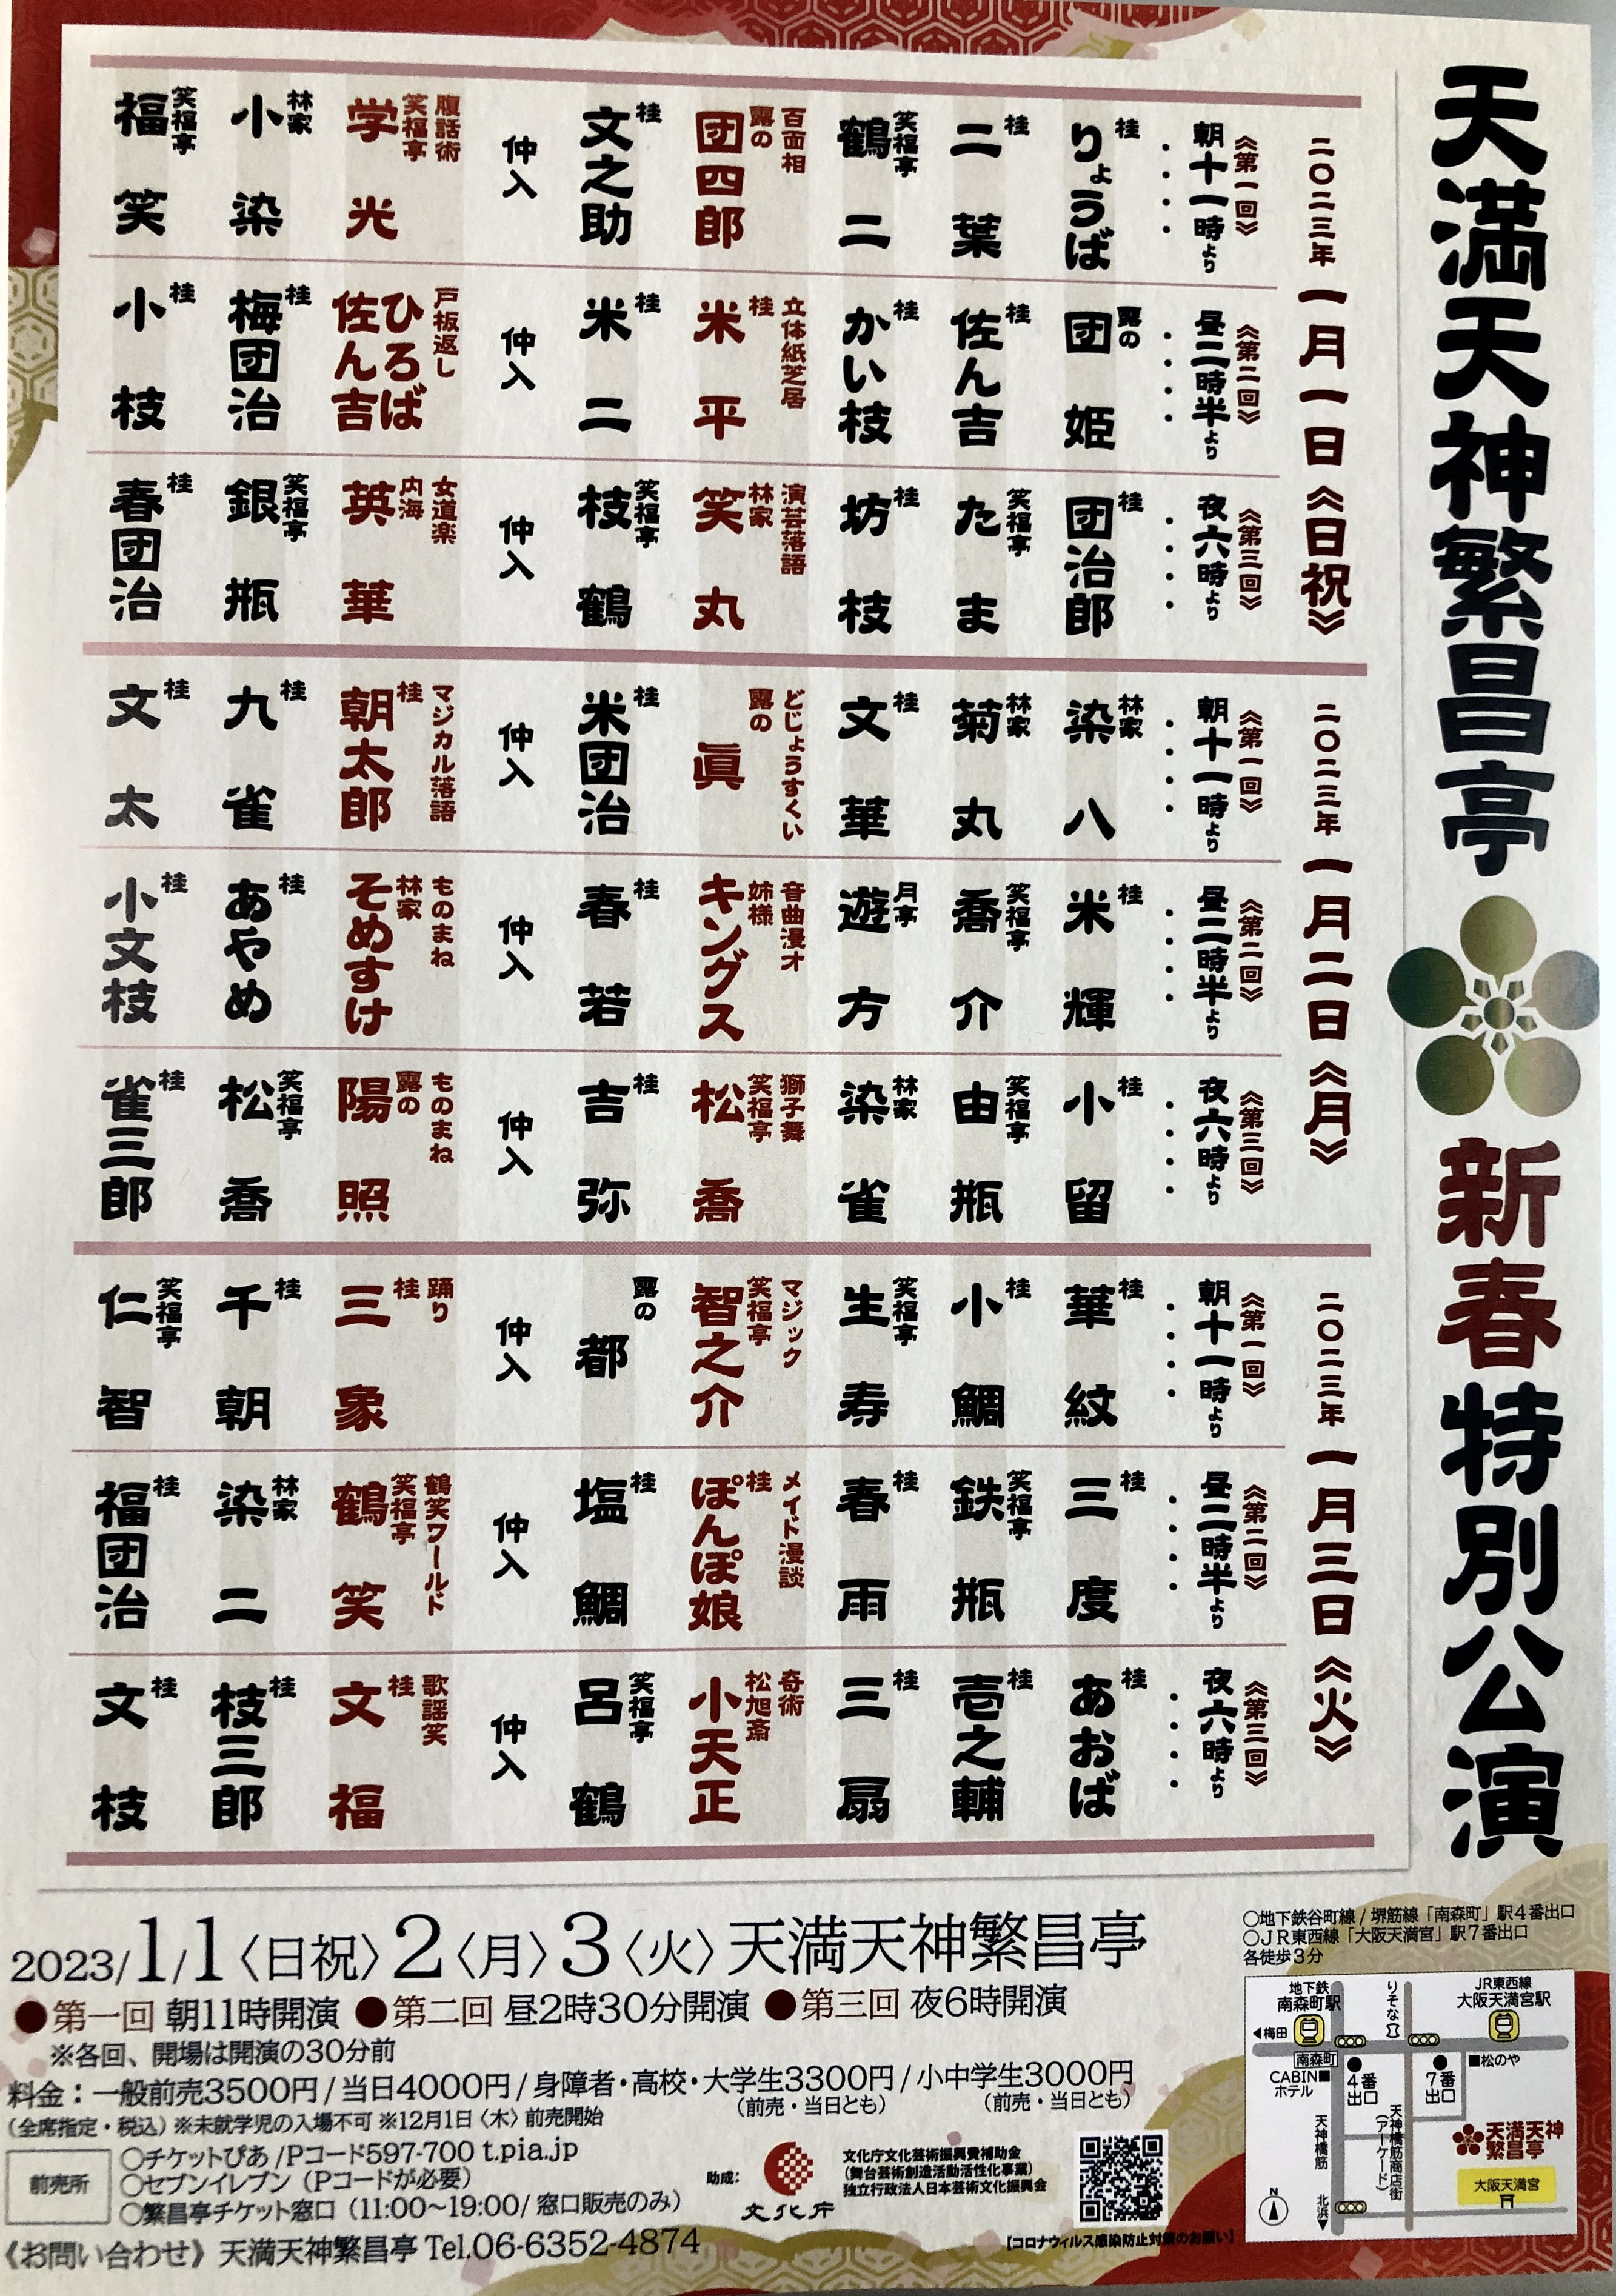 天満天神繁昌亭 新春特別公演
二〇二三年 一月一日《日祝》
《第一回》
朝十一時より
桂 りょうば
桂 二葉
笑福亭 鶴二
百面相
露の 団四郎
桂 文之助
仲入
腹話術
笑福亭 学光
林家 小染
笑福亭 福笑
《第二回》
昼二時半より
露の 団姫
桂 佐ん吉
桂 かい枝
立体紙芝居
桂 米平
桂 米二
仲入
戸板返し
ひろば
佐ん吉
桂 梅団治
桂 小枝
《第三回》
夜六時より
桂 団治郎
笑福亭 たま
桂 坊枝
演芸落語
林家 笑丸
笑福亭 枝鶴
仲入
女道楽
内海 英華
笑福亭 銀瓶
桂 春団治
二〇二三年 一月二日《月》
《第一回》
朝十一時より
林家 染八
林家 菊丸
桂 文華
どじょうすくい
露の 眞
桂 米団治
仲入
マジカル落語
桂 朝太郎
桂 九雀
桂 文太
《第二回》
昼二時半より
桂 米輝
笑福亭 喬介
月亭 遊方
音曲漫才
姉様 キングス
桂 春若
仲入
ものまね
林家 そめすけ
桂 あやめ
桂 小文枝
《第三回》
夜六時より
桂 小留
笑福亭 由瓶
林家 染雀
獅子舞
笑福亭 松喬
桂 吉弥
仲入
ものまね
露の 陽照
笑福亭 松喬
桂 雀三郎
二〇二三年 一月三日《火》
《第一回》
朝十一時より
桂 華紋
桂 小鯛
笑福亭 生寿
マジック
笑福亭 智之介
露の 都
仲入
踊り
桂 三象
桂 千朝
笑福亭 仁智
《第二回》
昼二時半より
桂 三度
笑福亭 鉄瓶
桂 春雨
メイド漫談
桂 ぽんぽ娘
桂 塩鯛
仲入
鶴笑ワールド
笑福亭 鶴笑
林家 染二
桂 福団治
《第三回》
夜六時より
桂 あおば
桂 壱之輔
桂 三扇
奇術
松旭斎 小天正
笑福亭 呂鶴
仲入
歌謡笑
桂 文福
桂 枝三郎
桂 文枝
2023/1/1〈日祝〉2〈月〉3〈火〉天満天神繁昌亭
●第一回 朝11時開演 ●第二回 昼2時30分開演 ●第三回 夜6時開演
※各回、開場は開演の30分前
料金：一般前売3500円/当日4000円/身障者・高校・大学生3300円/小中学生3000円
(前売・当日とも) (前売・当日とも)
(全席指定・税込) ※未就学児の入場不可 ※12月1日〈木〉前売開始
前売所
○チケットぴあ/Pコード597-700 t.pia.jp
○セブンイレブン（Pコードが必要）
○繁昌亭チケット窓口（11:00〜19:00/ 窓口販売のみ）
《お問い合わせ》天満天神繁昌亭 Tel.06-6352-4874
助成：
文化庁
文化庁文化芸術振興費補助金
(舞台芸術創造活動活性化事業)
独立行政法人日本芸術文化振興会
【コロナウィルス感染防止対策のお願い】
○地下鉄谷町線/堺筋線「南森町」駅4番出口
○JR東西線「大阪天満宮」駅7番出口
各徒歩3分
地下鉄
南森町駅
りそな
JR東西線
大阪天満宮駅
◀梅田
南森町
CABIN■
ホテル
4番
出口
7番
出口
■松のや
天神橋筋
天神橋筋商店街
(アーケード)
天満天神
繁昌亭
大阪天満宮
N
北浜▼